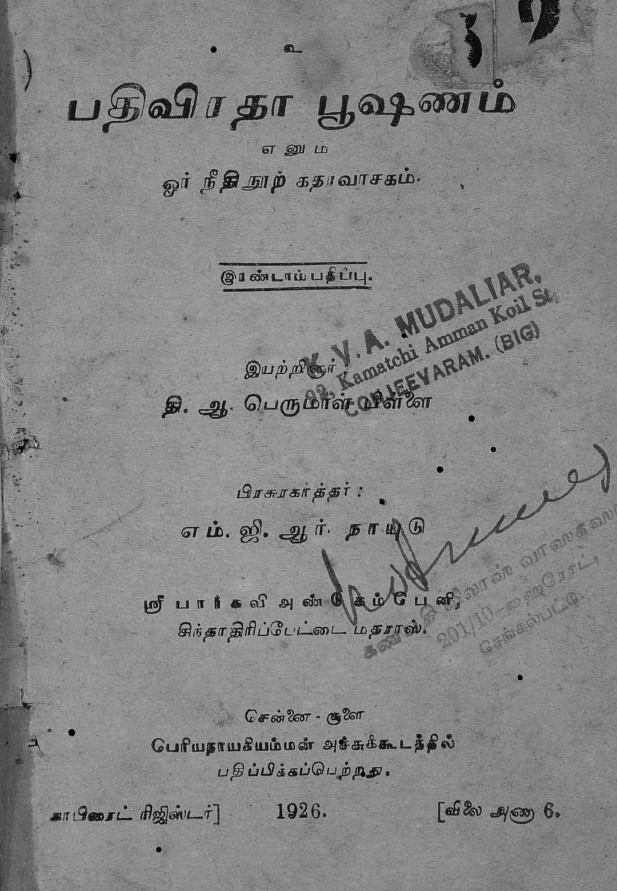 உ
பதிவிரதா பூஷணம்
எனும்
ஓர் நீதிநூற் கதாவாசகம்.
இரண்டாம்பதிப்பு.
K. V. A. MUDALIAR,
92, Kamatchi Amman Koil St,
CONJEEVARAM. (BIG)
இயற்றினார்
தி. ஆ. பெருமாள் பிள்ளை
பிரசுரகர்த்தர் :
எம். ஜி. ஆர். நாயுடு
ஸ்ரீ பார்கவி அண்டு கம்பேனி,
சிந்தாதிரிப்பேட்டை மதராஸ்.
201/10
செங்கல்பட்டு.
சென்னை - சூளை
பெரியநாயகியம்மன் அச்சுக்கூடத்தில்
பதிப்பிக்கப்பெற்றது.
காபிரைட் ரிஜிஸ்டர்] 1926. [விலை அணா 6.